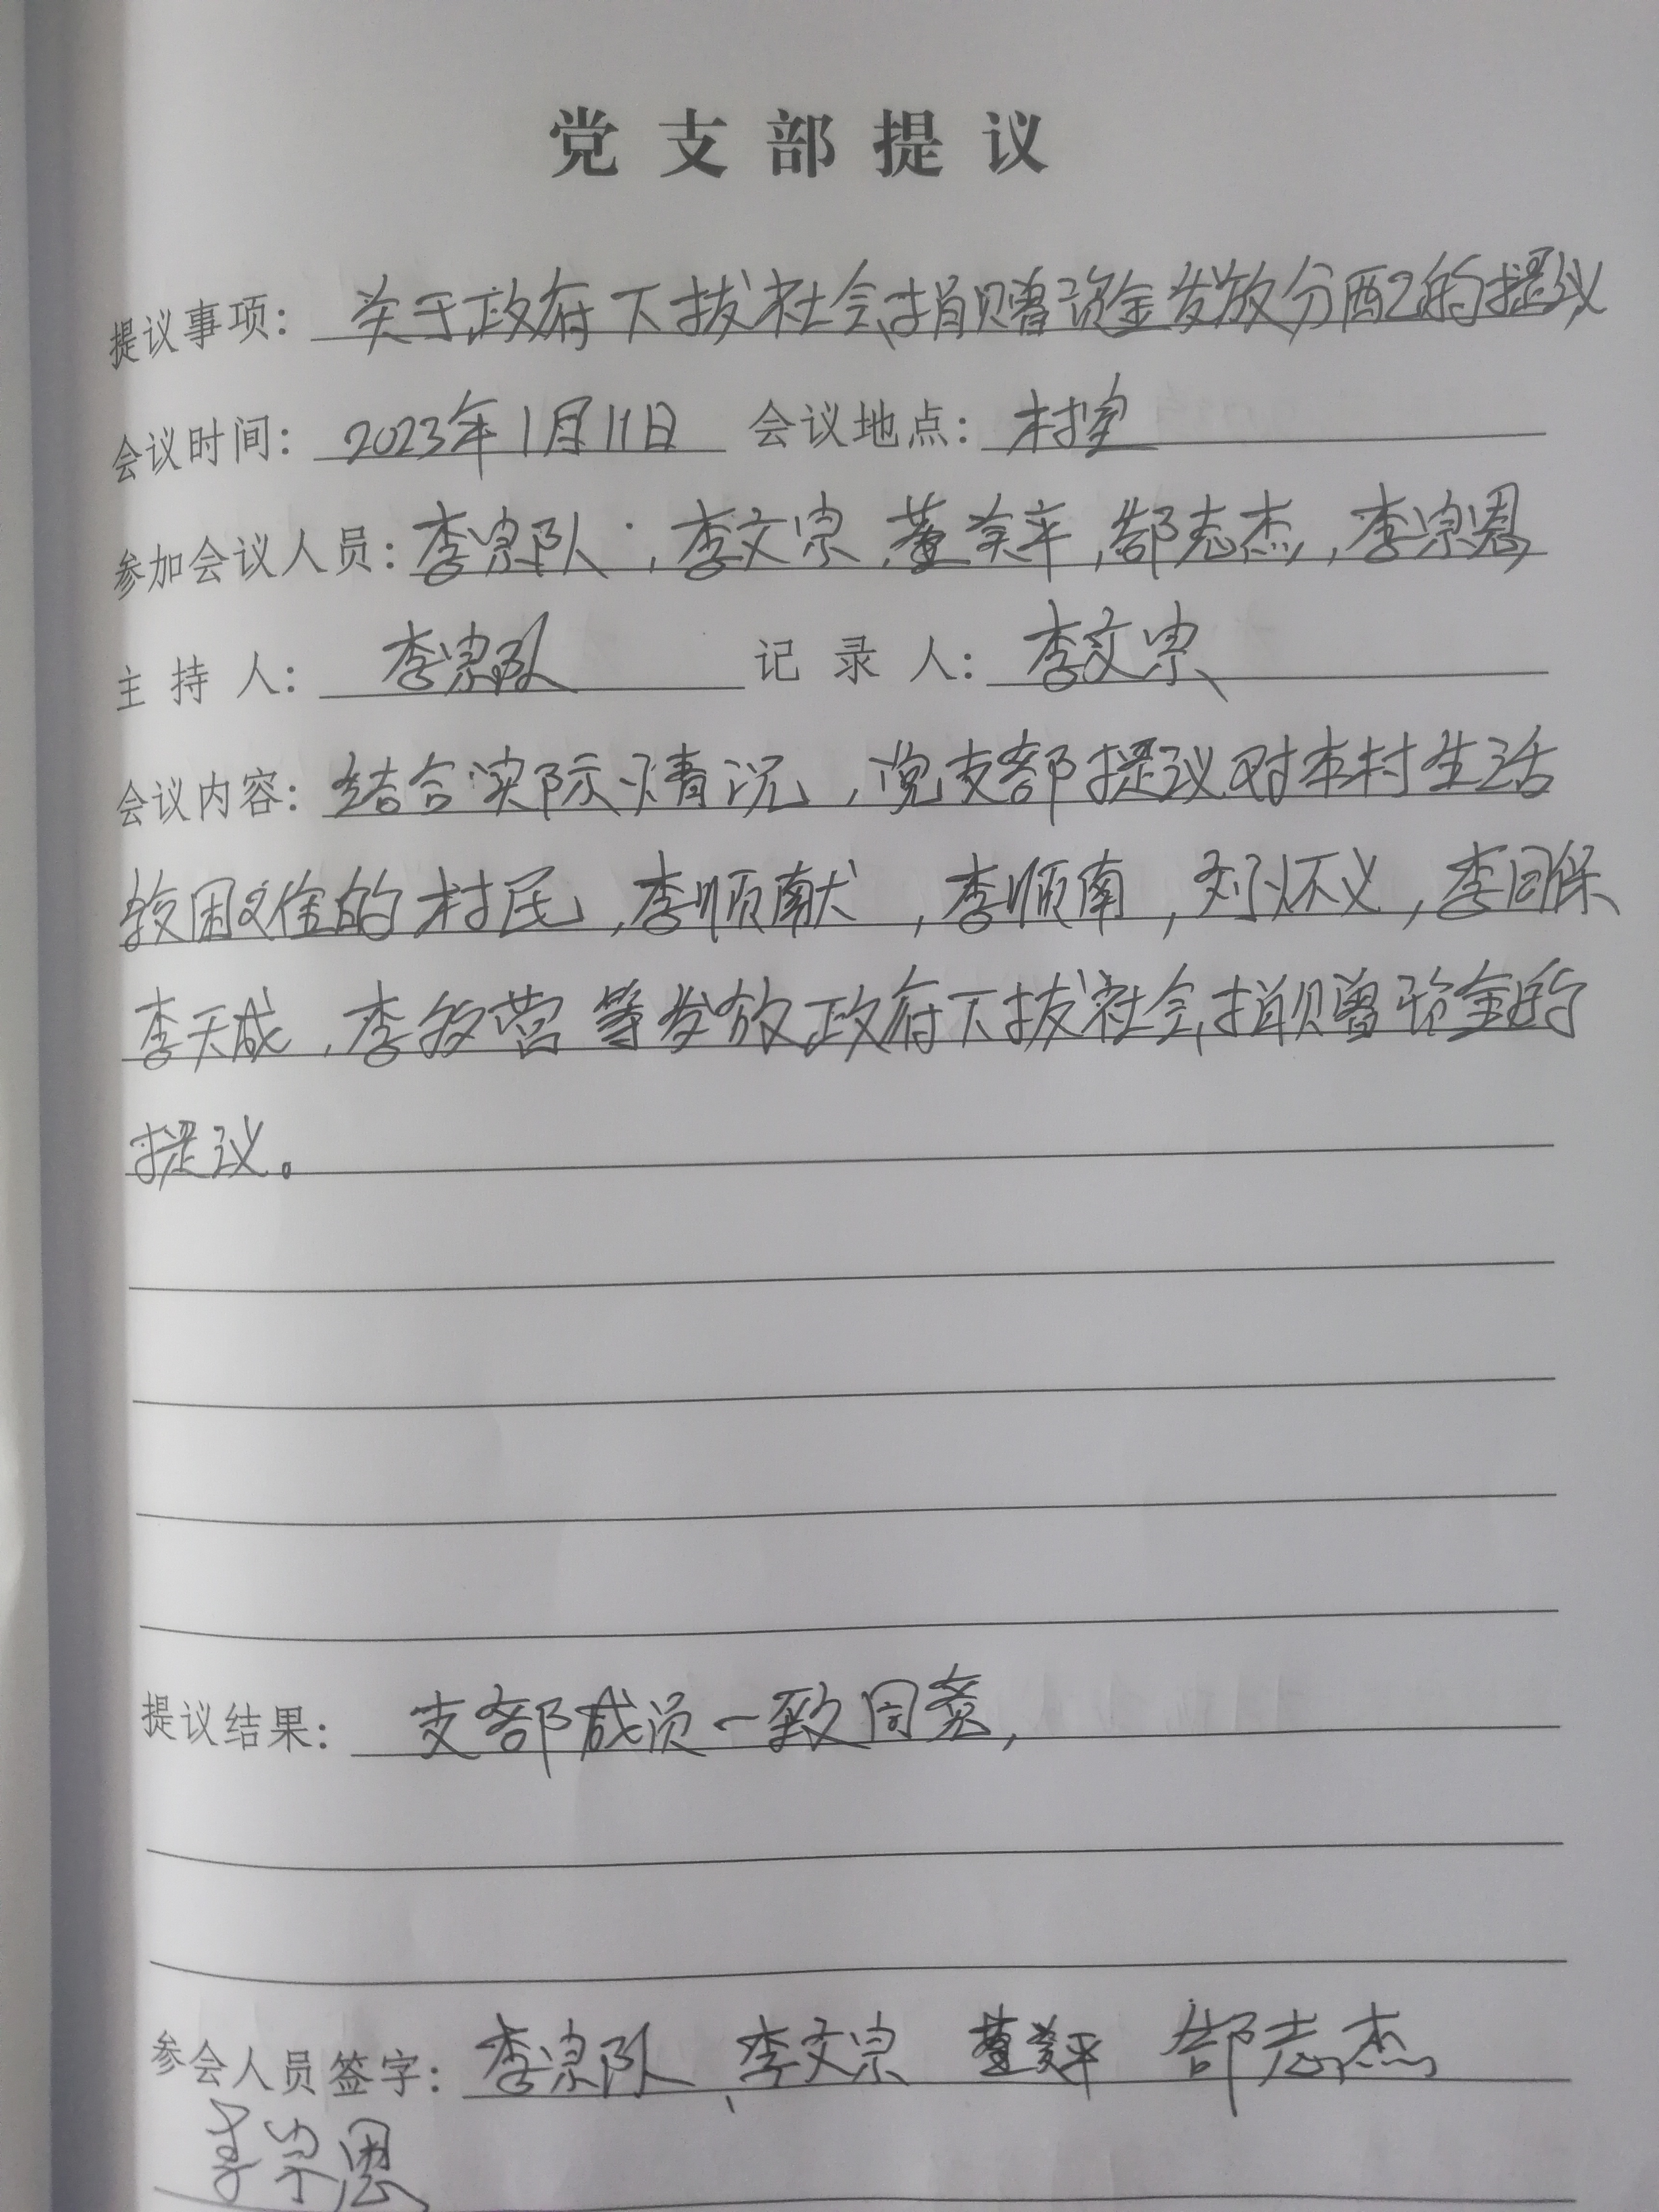 党支部提议
提议事项：关于政府下拨社会捐赠资金发放分配的提议
会议时间：2023年1月11日 会议地点：村室
参加会议人员：李宗队，李文宗，董关平，郜志杰，李宗恩
主持人：李宗队 记录人：李文宗
会议内容：结合实际情况，党支部提议对本村生活
较困难的村民，李顺献，李顺南，刘怀义，李同保
李天成，李敬营等发放政府下拨社会捐赠资金的
提议。
提议结果：支部成员一致同意，
参会人员签字：李宗队、李文宗 董关平 郜志杰
李宗恩